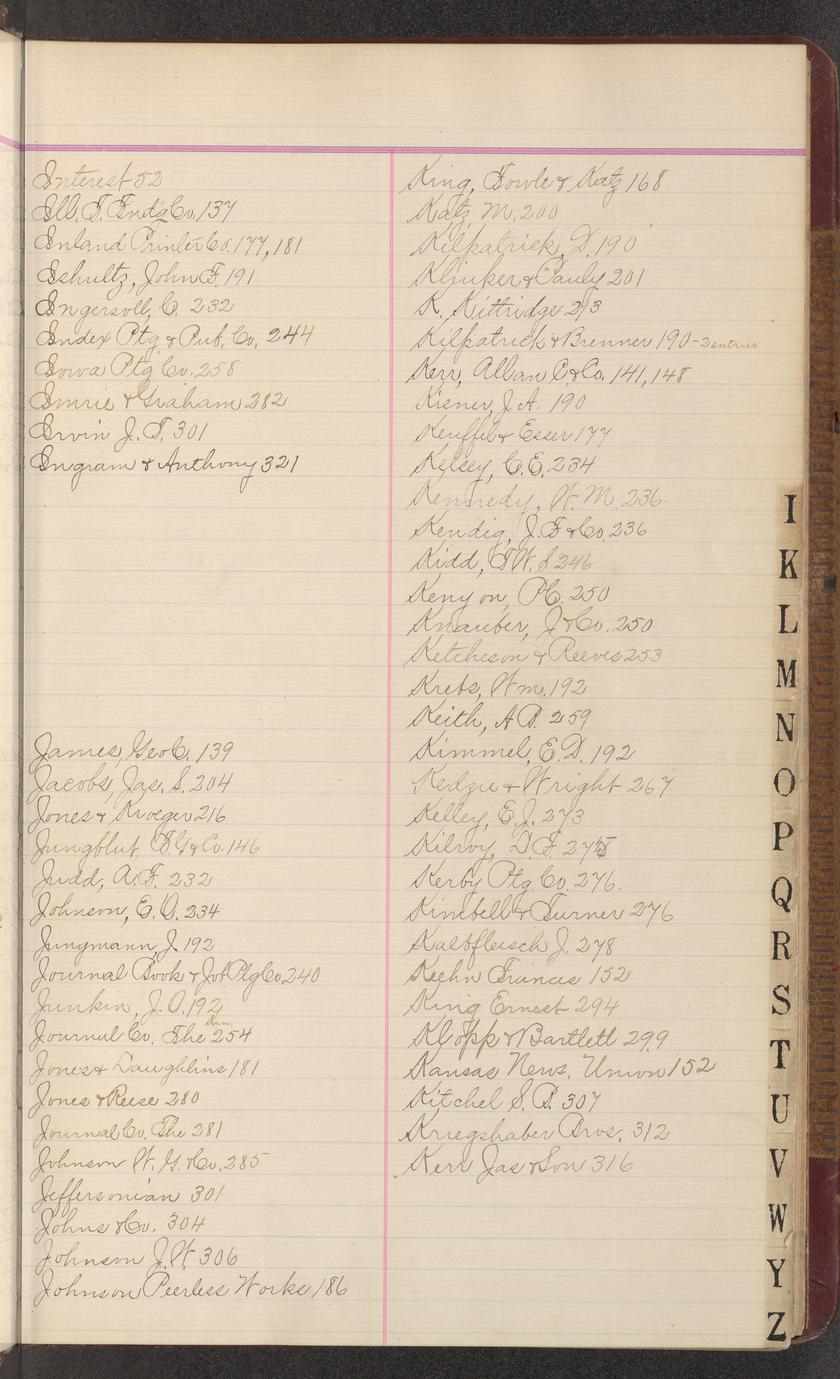 Interest 52
Ill. T. Fndg Co. 137
Inland Printer Co. 177, 181
Ishultz, John F. 191
Ingersoll, C. 232
Index Ptg & Pub. Co. 244
Iowa Ptg Co. 258
Imrie & Graham 282
Irvin J. T. 301
Ingram & Anthony 321
James, Geo C. 139
Jacobs, Jas. S. 204
Jones & Kroeger 216
Jungblut, & Co. 146
Judd, A. F. 232
Johnson, E. O. 234
Jungmann, J. 192
Journal Book & Job Ptg Co 240
Junkin, J. O. 192
Journal Co. The 254
Jones & Laughlins 181
Jones & Reese 280
Journal Co. The 281
Johnson W. G. & Co. 285
Jeffersonian 301
Johns & Co. 304
Johnson J. W. 306
Johnson Peerless Works 186
King, Fowle & Katz 168
Katz M. 200
Kilpatrick, D. 190
Klinker & Pauly 201
K. Kittridge 213
Kilpatrick & Brenner 190 - 2 entries
Kerr, Alban C. & Co. 141, 148
Kiener, J. A. 190
Keuffel & Esser 177
Kelsey, C. E. 234
Kennedy, W. M. 236
Kendig, J. F. & Co. 236
Kidd, T. W. S 246
Kenyon, P. C. 250
Knauber, J. & Co. 250
Ketcheson & Reeves 253
Krebs, Wm. 192
Keith, A B. 259
Kimmel, E. D. 192
Kedzie & Wright 267
Kelley, E. J. 273
Kilroy, D. F. 275
Kerby Ptg. Co. 276.
Kimbell & Turner 276
Kalbfleisch J. 278
Keehn Francis 152
King Ernest 294
Klopp & Bartlett 299
Kansas News. Union 152
Kitchel S. B. 307
Kriegshaber Bros. 312
Kerr Jas & Son 316
I
K
L
M
N
O
P
Q
R
S
T
U
V
W
Y
Z